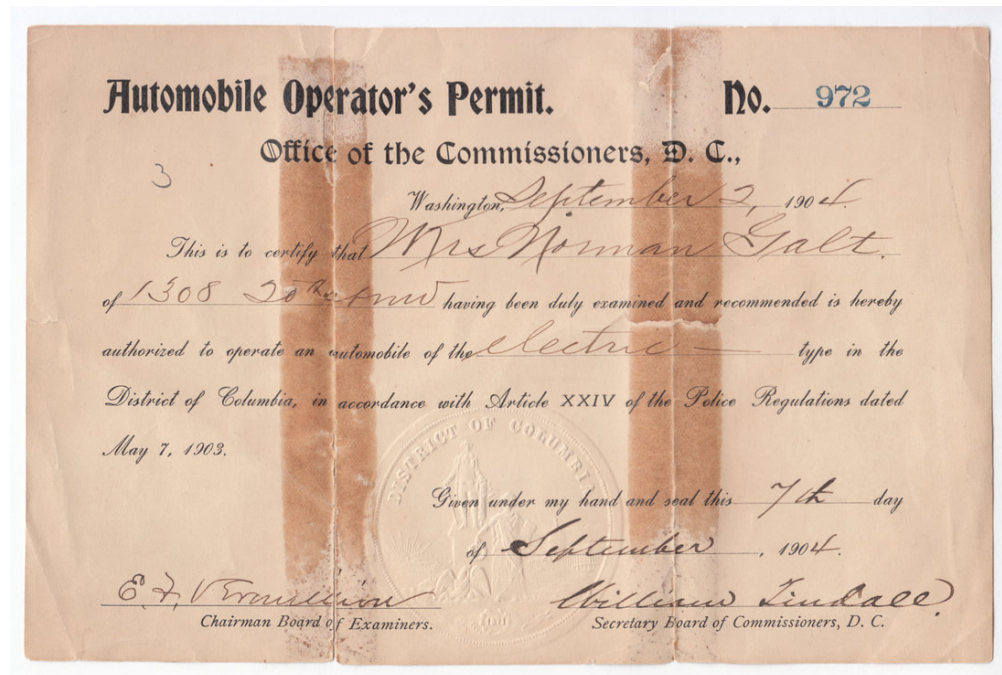 Automobile Operator's Permit. No. 972
Office of the Commissioners, D. C.,
3
Washington, September 2, 1904.
This is to certify that Mrs Norman Galt.
of 1308 20th st nw having been duly examined and recommended is hereby
authorized to operate an automobile of the electric — type in the
District of Columbia, in accordance with Article XXIV of the Police Regulations dated
May 7, 1903.
DISTRICT OF COLUMBIA
Given under my hand and seal this 7th day
of September, 1904.
E. F. Vermillion William Tindall.
Chairman Board of Examiners. Secretary Board of Commissioners, D. C.
1871